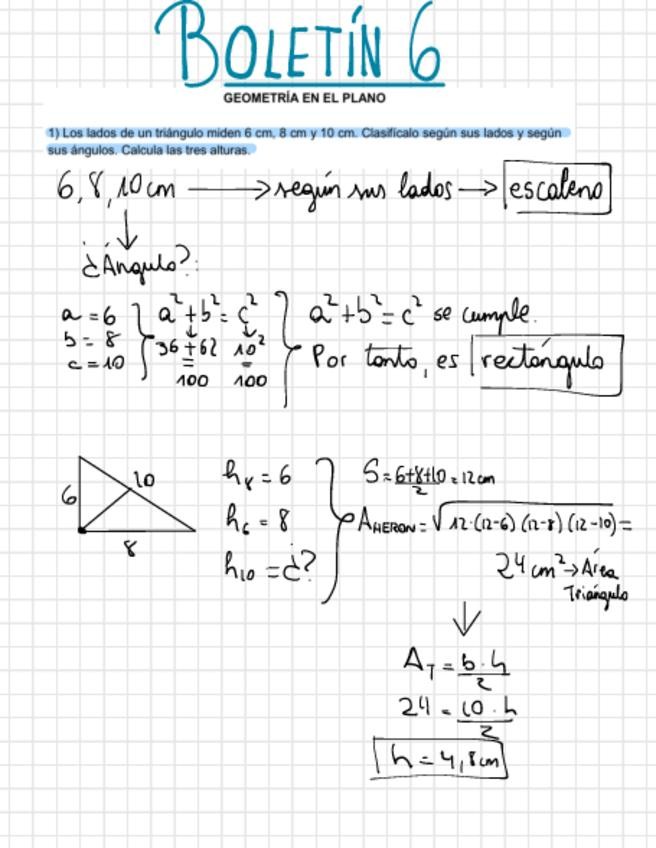 BOLETÍN 6
GEOMETRÍA EN EL PLANO
1) Los lados de un triángulo miden 6 cm, 8 cm y 10 cm. Clasifícalo según sus lados y según
sus ángulos. Calcula las tres alturas.
6, 8, 10 cm → según sus lados → escaleno
¿Ángulo?:
a = 6
b = 8
c = 10
a² + b² = c²
36 + 62 10²
= =
100 100
a² + b² = c² se cumple.
Por tanto, es rectángulo
6
10
8
h₈ = 6
h₆ = 8
h₁₀ = ¿?
S = 6+8+10/2 = 12 cm
A_HERON = √12·(12-6)(12-8)(12-10) =
24 cm² → Área
Triángulo
A_T = b·h/2
24 = 10·h/2
h = 4,8 cm